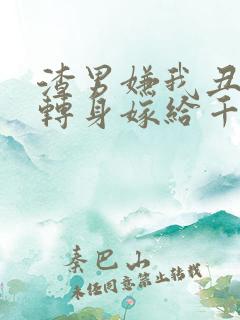 渣男嫌我丑
轉身嫁給千
秦巴山
未经同意禁止转载